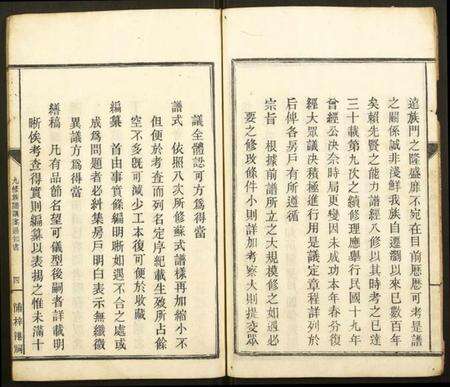 追族門之隆盛靡不宛在目前歷歷可考是譜
之關係誠非淺鮮我族自遷瀏以來已數百年
矣賴先賢之能力譜經八修以其時考之已達
三十載第九次之續修理應舉行民國十九年
曾經公決奈時局更變因未成功本年春分復
經大眾議決積極進行用是議定章程詳列於
后俾各房戶有所遵循
宗旨 根據前譜所訂之大規模修之如遇必
要之修改條件小則詳加考察大則提交眾
議全體認可方爲得當
譜式 依照八次所修蘇式譜樣再加縮小不
但便於考查而列名定序紀載生歿所占餘
空不多旣可減少工本復可便於收藏
編纂 首由事實條編明晰如遇不合之處或
成爲問題者必糾集房戶明白表示無纖微
異議方爲得當
繕稿 凡有品節名望可儀型後嗣者詳載明
晰俟考查得實則編纂以表揚之惟未滿十
九修族譜議案通知書
四